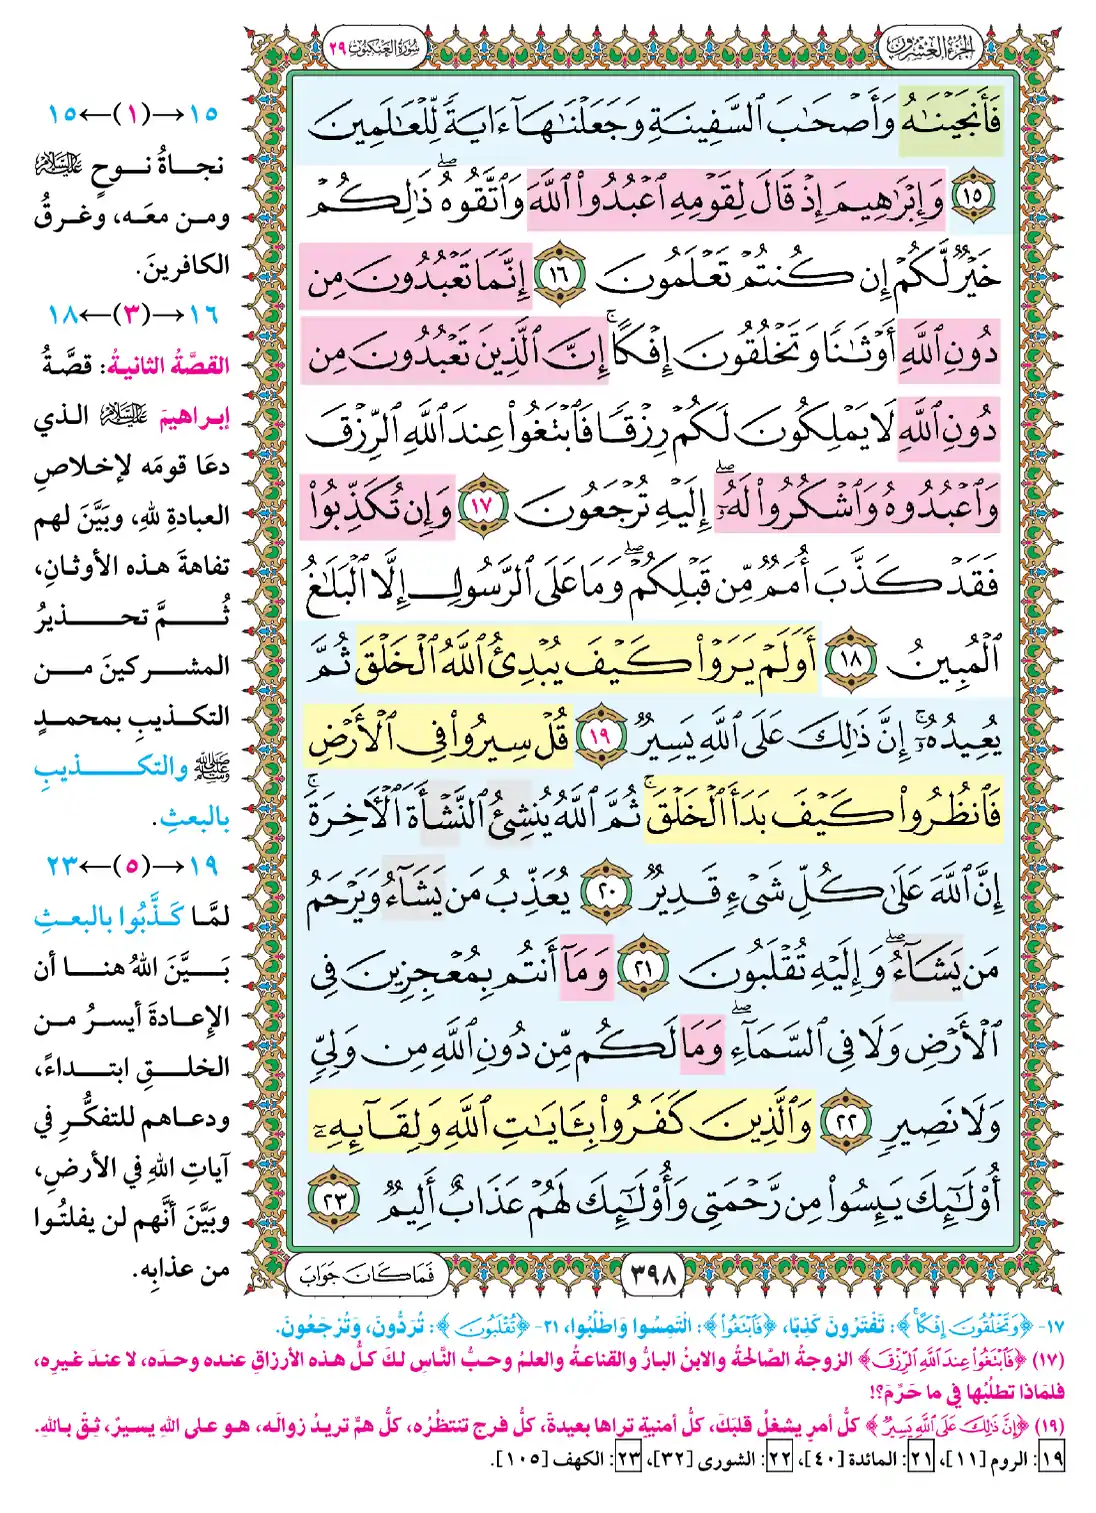 الجزء العشرون
سورة العنكبوت ٢٩
فَأَنجَيْنَٰهُ وَأَصْحَٰبَ ٱلسَّفِينَةِ وَجَعَلْنَٰهَآ ءَايَةً لِّلْعَٰلَمِينَ
١٥ وَإِبْرَٰهِيمَ إِذْ قَالَ لِقَوْمِهِ ٱعْبُدُوا۟ ٱللَّهَ وَٱتَّقُوهُ ۖ ذَٰلِكُمْ
خَيْرٌ لَّكُمْ إِن كُنتُمْ تَعْلَمُونَ ١٦ إِنَّمَا تَعْبُدُونَ مِن
دُونِ ٱللَّهِ أَوْثَٰنًا وَتَخْلُقُونَ إِفْكًا ۚ إِنَّ ٱلَّذِينَ تَعْبُدُونَ مِن
دُونِ ٱللَّهِ لَا يَمْلِكُونَ لَكُمْ رِزْقًا فَٱبْتَغُوا۟ عِندَ ٱللَّهِ ٱلرِّزْقَ
وَٱعْبُدُوهُ وَٱشْكُرُوا۟ لَهُۥٓ ۖ إِلَيْهِ تُرْجَعُونَ ١٧ وَإِن تُكَذِّبُوا۟
فَقَدْ كَذَّبَ أُمَمٌ مِّن قَبْلِكُمْ ۖ وَمَا عَلَى ٱلرَّسُولِ إِلَّا ٱلْبَلَٰغُ
ٱلْمُبِينُ ١٨ أَوَلَمْ يَرَوْا۟ كَيْفَ يُبْدِئُ ٱللَّهُ ٱلْخَلْقَ ثُمَّ
يُعِيدُهُۥٓ ۚ إِنَّ ذَٰلِكَ عَلَى ٱللَّهِ يَسِيرٌ ١٩ قُلْ سِيرُوا۟ فِى ٱلْأَرْضِ
فَٱنظُرُوا۟ كَيْفَ بَدَأَ ٱلْخَلْقَ ۚ ثُمَّ ٱللَّهُ يُنشِئُ ٱلنَّشْأَةَ ٱلْءَاخِرَةَ ۚ
إِنَّ ٱللَّهَ عَلَىٰ كُلِّ شَىْءٍ قَدِيرٌ ٢٠ يُعَذِّبُ مَن يَشَآءُ وَيَرْحَمُ
مَن يَشَآءُ ۖ وَإِلَيْهِ تُقْلَبُونَ ٢١ وَمَآ أَنتُم بِمُعْجِزِينَ فِى
ٱلْأَرْضِ وَلَا فِى ٱلسَّمَآءِ ۖ وَمَا لَكُم مِّن دُونِ ٱللَّهِ مِن وَلِىٍّ
وَلَا نَصِيرٍ ٢٢ وَٱلَّذِينَ كَفَرُوا۟ بِـَٔايَٰتِ ٱللَّهِ وَلِقَآئِهِۦٓ
أُو۟لَٰٓئِكَ يَئِسُوا۟ مِن رَّحْمَتِى وَأُو۟لَٰٓئِكَ لَهُمْ عَذَابٌ أَلِيمٌ ٢٣
٣٩٨
فَمَا كَانَ جَوَابَ
١٥→(١)←١٥
نجاةُ نوحٍ عليه السلام
ومن معَه، وغرقُ
الكافرينَ.
١٦→(٣)←١٨
القصَّةُ الثانيةُ: قصَّةُ
إبراهيمَ عليه السلام الذي
دعَا قومَه لإخلاصِ
العبادةِ للهِ، وبَيَّنَ لهم
تفاهةَ هذه الأوثانِ،
ثُمَّ تحذيرُ
المشركينَ من
التكذيبِ بمحمدٍ
ﷺ والتكذيبِ
بالبعثِ.
١٩→(٥)←٢٣
لمَّا كَذَّبُوا بالبعثِ
بَيَّنَ اللهُ هنا أن
الإعادةَ أيسرُ من
الخلقِ ابتداءً،
ودعاهم للتفكُّرِ في
آياتِ اللهِ في الأرضِ،
وبَيَّنَ أنَّهم لن يفلتُوا
من عذابِه.
١٧- ﴿وَتَخْلُقُونَ إِفْكًا﴾: تَفْتَرُونَ كَذِبًا، ﴿فَٱبْتَغُوا۟﴾: الْتَمِسُوا وَاطْلُبُوا، ٢١- ﴿تُقْلَبُونَ﴾: تُرَدُّونَ، وَتُرْجَعُونَ.
(١٧) ﴿فَٱبْتَغُوا۟ عِندَ ٱللَّهِ ٱلرِّزْقَ﴾ الزوجةُ الصَّالحةُ والابنُ البارُّ والقناعةُ والعلمُ وحبُّ النَّاسِ لكَ كلُّ هذه الأرزاقِ عنده وحدَه، لا عندَ غيرِه،
فلمَاذا تطلبُها في ما حَرَّمَ؟!
(١٩) ﴿إِنَّ ذَٰلِكَ عَلَى ٱللَّهِ يَسِيرٌ﴾ كلُّ أمرٍ يشغلُ قلبَكَ، كلُّ أمنيةٍ تراها بعيدةً، كلُّ فرجٍ تنتظرُه، كلُّ همٍّ تريدُ زوالَه، هو على اللهِ يسيرٌ، ثِقْ باللهِ.
١٩: الروم [١١]، ٢١: المائدة [٤٠]، ٢٢: الشورى [٣٢]، ٢٣: الكهف [١٠٥].